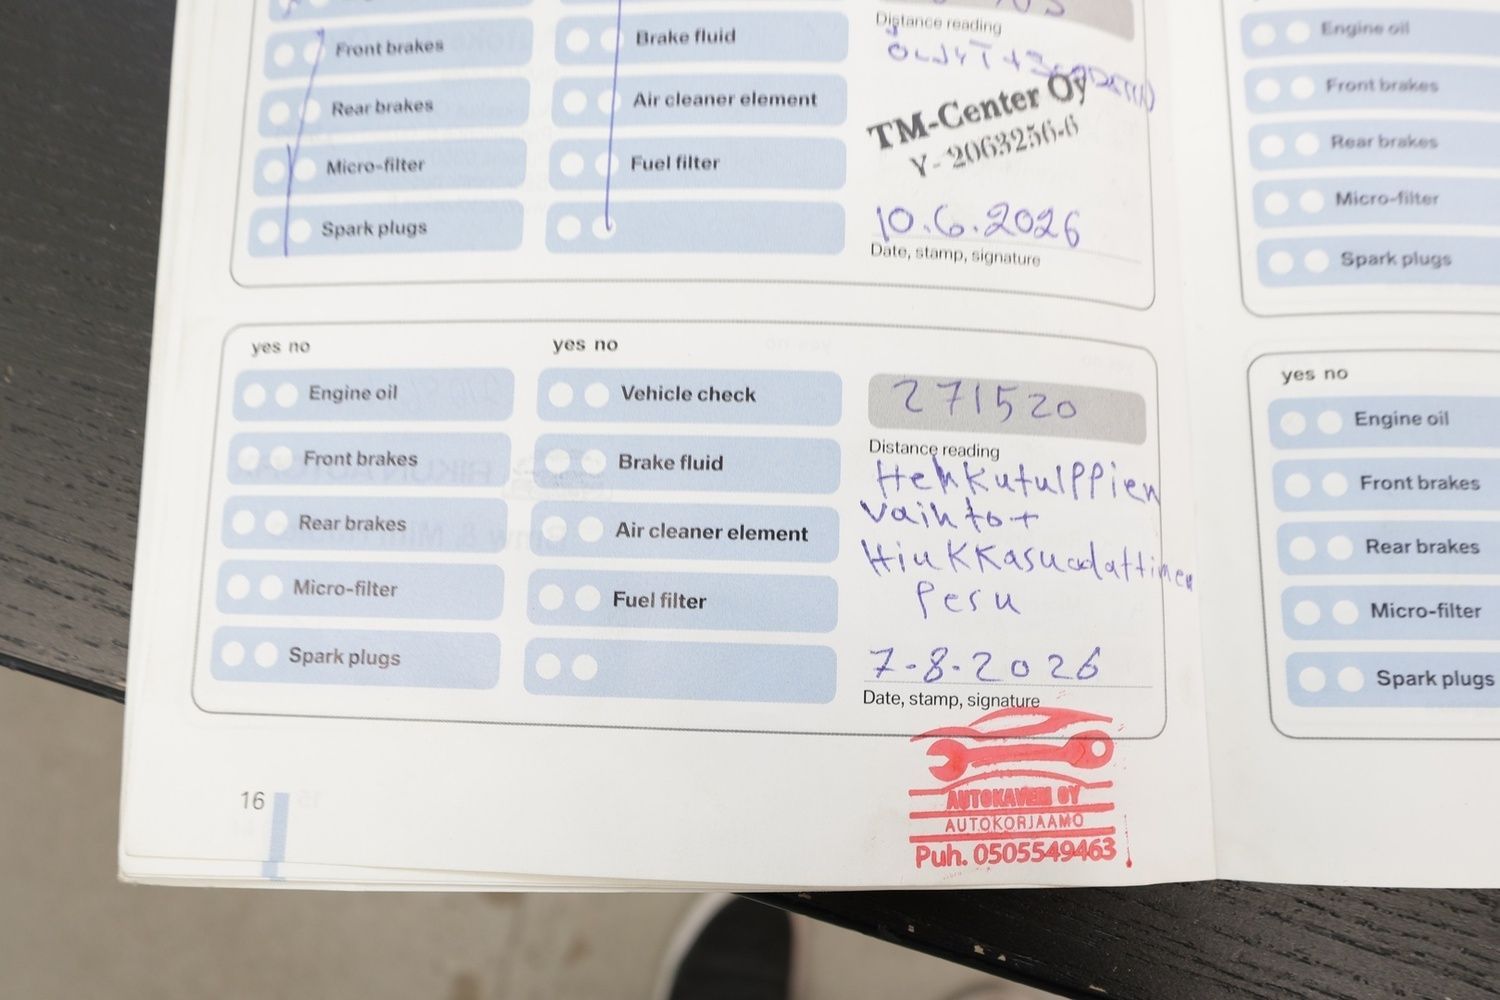 Front brakes
Rear brakes
Micro-filter
Spark plugs
Brake fluid
Air cleaner element
Fuel filter
Distance reading
TM-Center Oy
Y-2063256-6
10.6.2026
Date, stamp, signature
yes no
Engine oil
Front brakes
Rear brakes
Micro-filter
Spark plugs
yes no
Vehicle check
Brake fluid
Air cleaner element
Fuel filter
271520
Distance reading
Hehkutulppien
vaihto +
Hiukkasuodattimen
Pesu
7-8-2026
Date, stamp, signature
AUTOKAVERI OY
AUTOKORJAAMO
Puh. 0505549463
16
Engine oil
Front brakes
Rear brakes
Micro-filter
Spark plugs
yes no
Engine oil
Front brakes
Rear brakes
Micro-filter
Spark plugs